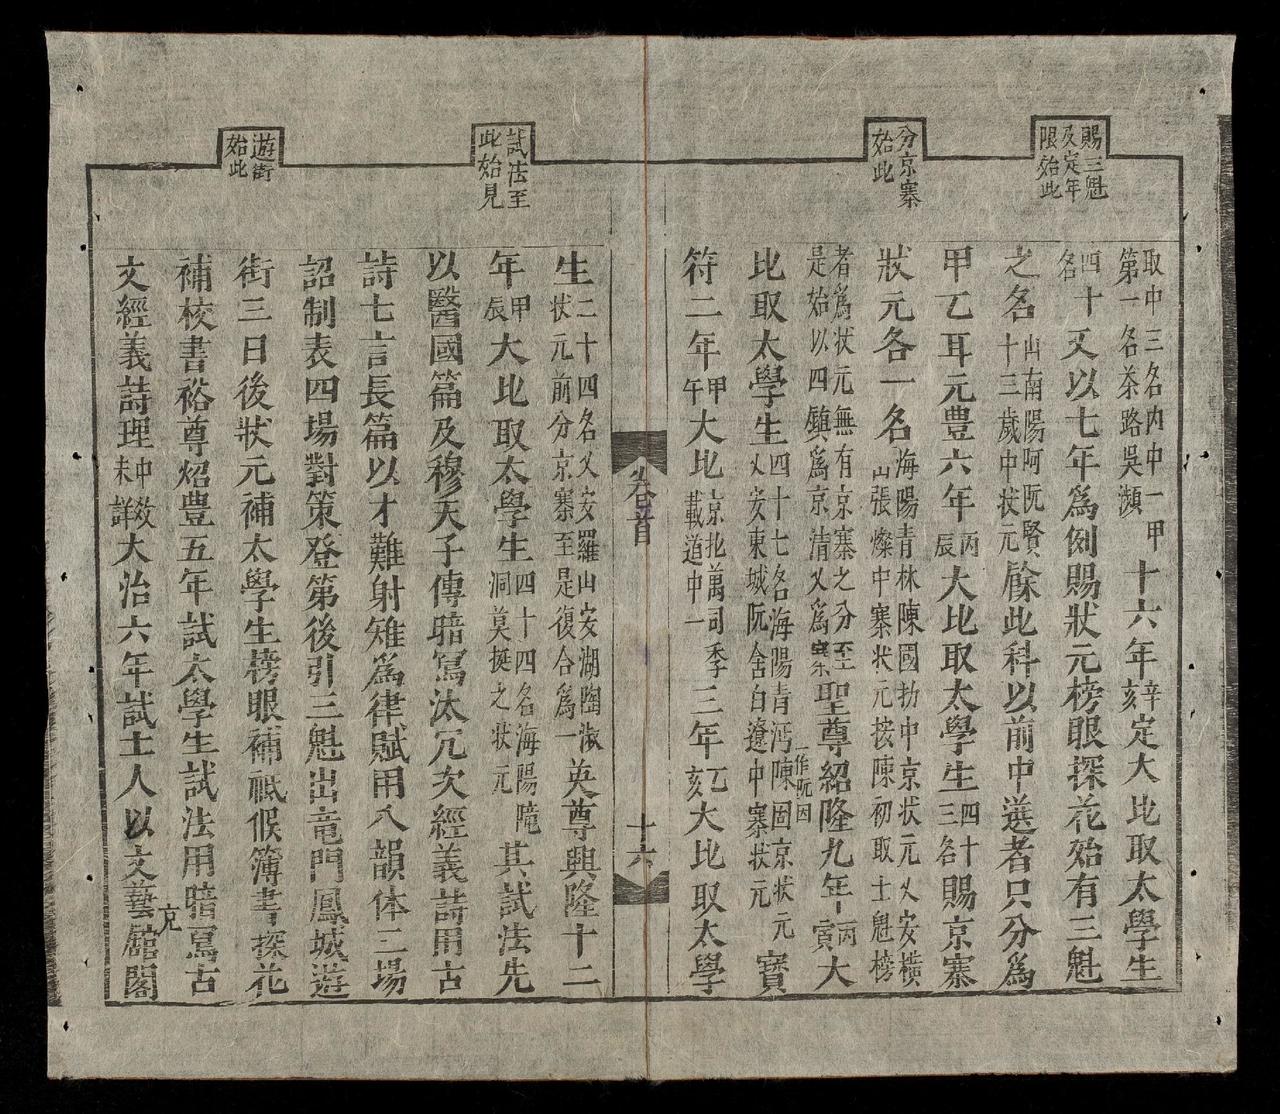 賜三魁
及定年
限始此
分京寨
始此
試法至
此始見
遊街
始此
取中三名内中一甲
第一名茶路吳瀕
十六年辛亥定大比取太學生
四十名又以七年爲例賜狀元榜眼探花始有三魁
之名山南陽阿阮賢十三歲中状元餘此科以前中選者只分爲
甲乙耳元豊六年丙辰大比取太學生四十三名賜京寨
狀元各一名海陽青林陳國扐中京状元乂安橫山張燦中寨状元按陳初取士魁榜
者爲状元無有京寨之分至是始以四鎮爲京清乂爲寨聖尊紹隆九年丙寅大
比取太學生四十七名海陽青沔陳固一作阮因京状元乂安東城阮舍白遼中寨状元寶
符二年甲午大比京北萬司季載道中一三年乙亥大比取太學
卷首
十六
生二十四名乂安羅山安湖陶淑状元前分京寨至是復合爲一英尊興隆十二
年甲辰大比取太學生四十四名海陽隴洞莫挺之状元其試法先
以醫國篇及穆天子傳暗寫汰冗次經義詩用古
詩七言長篇以才難射雉爲律賦用八韻体三場
詔制表四場對策登第後引三魁出竜門鳳城遊
街三日後狀元補太學生榜眼補祗候簿書探花
補校書裕尊炤豊五年試太學生試法用暗寫古
文經義詩理中效未詳大治六年試士人以文藝充舘閣